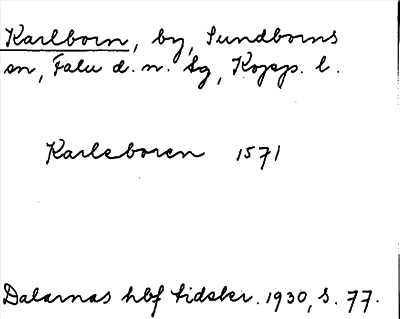 Karlborn, by, Sundborns
sn, Falu d. n. Sg, Kopp. l.
Karleboren 1571
Dalarnas hbf tidskr. 1930, s. 77.